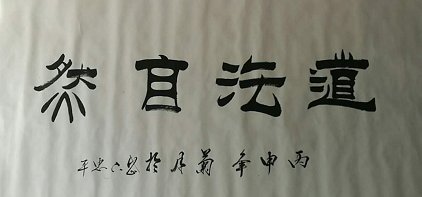 道法自然
丙申年菊月於